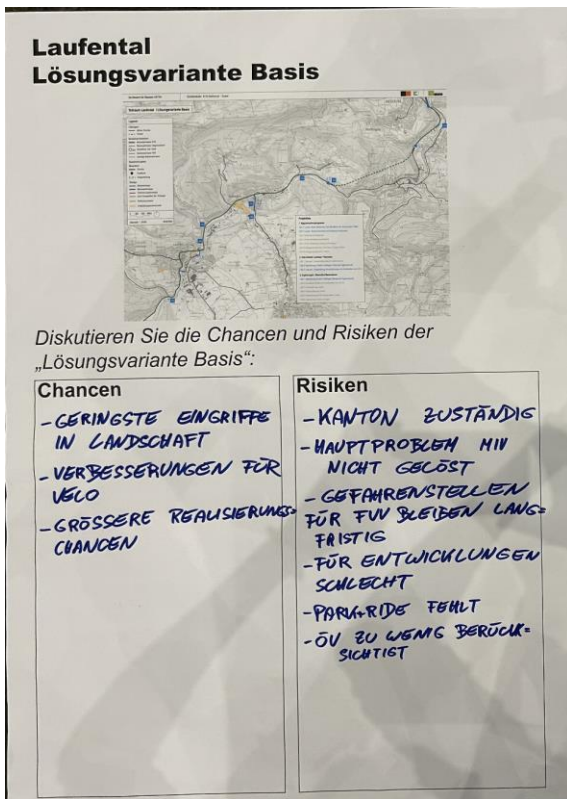 Laufental
Lösungsvariante Basis
Diskutieren Sie die Chancen und Risiken der
„Lösungsvariante Basis“:
Chancen
- GERINGSTE EINGRIFFE
IN LANDSCHAFT
- VERBESSERUNGEN FÜR
VELO
- GRÖSSERE REALISIERUNGS=
CHANCEN
Risiken
- KANTON ZUSTÄNDIG
- HAUPTPROBLEM MIV
NICHT GELÖST
- GEFAHRENSTELLEN
FÜR FVV BLEIBEN LANG=
FRISTIG
- FÜR ENTWICKLUNGEN
SCHLECHT
- PARK+RIDE FEHLT
- ÖV ZU WENIG BERÜCK=
SICHTIGT